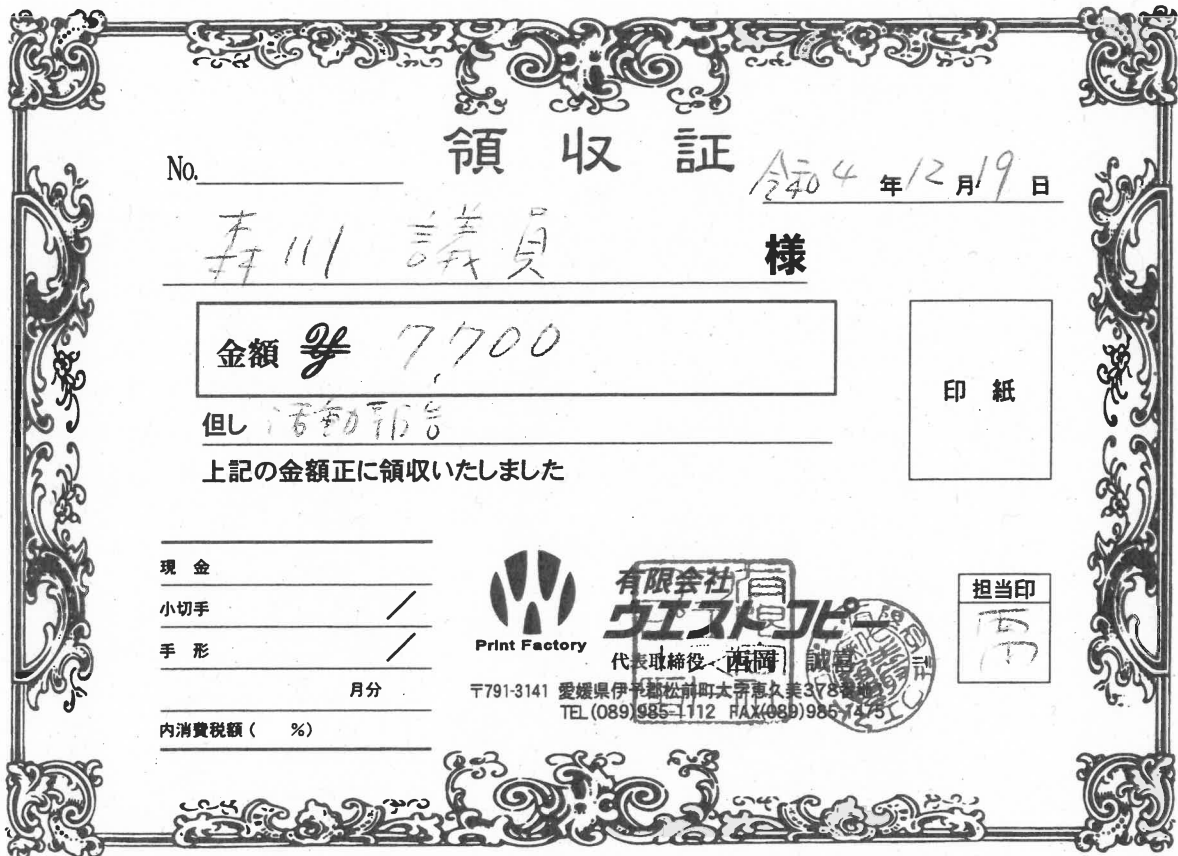 領収証
No.
令和4年12月19日
森川 議員 様
金額 ¥ 7,700
但し 活動報告
上記の金額正に領収いたしました
印紙
現金
小切手 /
手形 /
月分
内消費税額( %)
Print Factory
有限会社
ウエストコピー
代表取締役 西岡 誠喜
〒791-3141 愛媛県伊予郡松前町大字恵久美378番地1
TEL(089)985-1112 FAX(089)985-1475
担当印